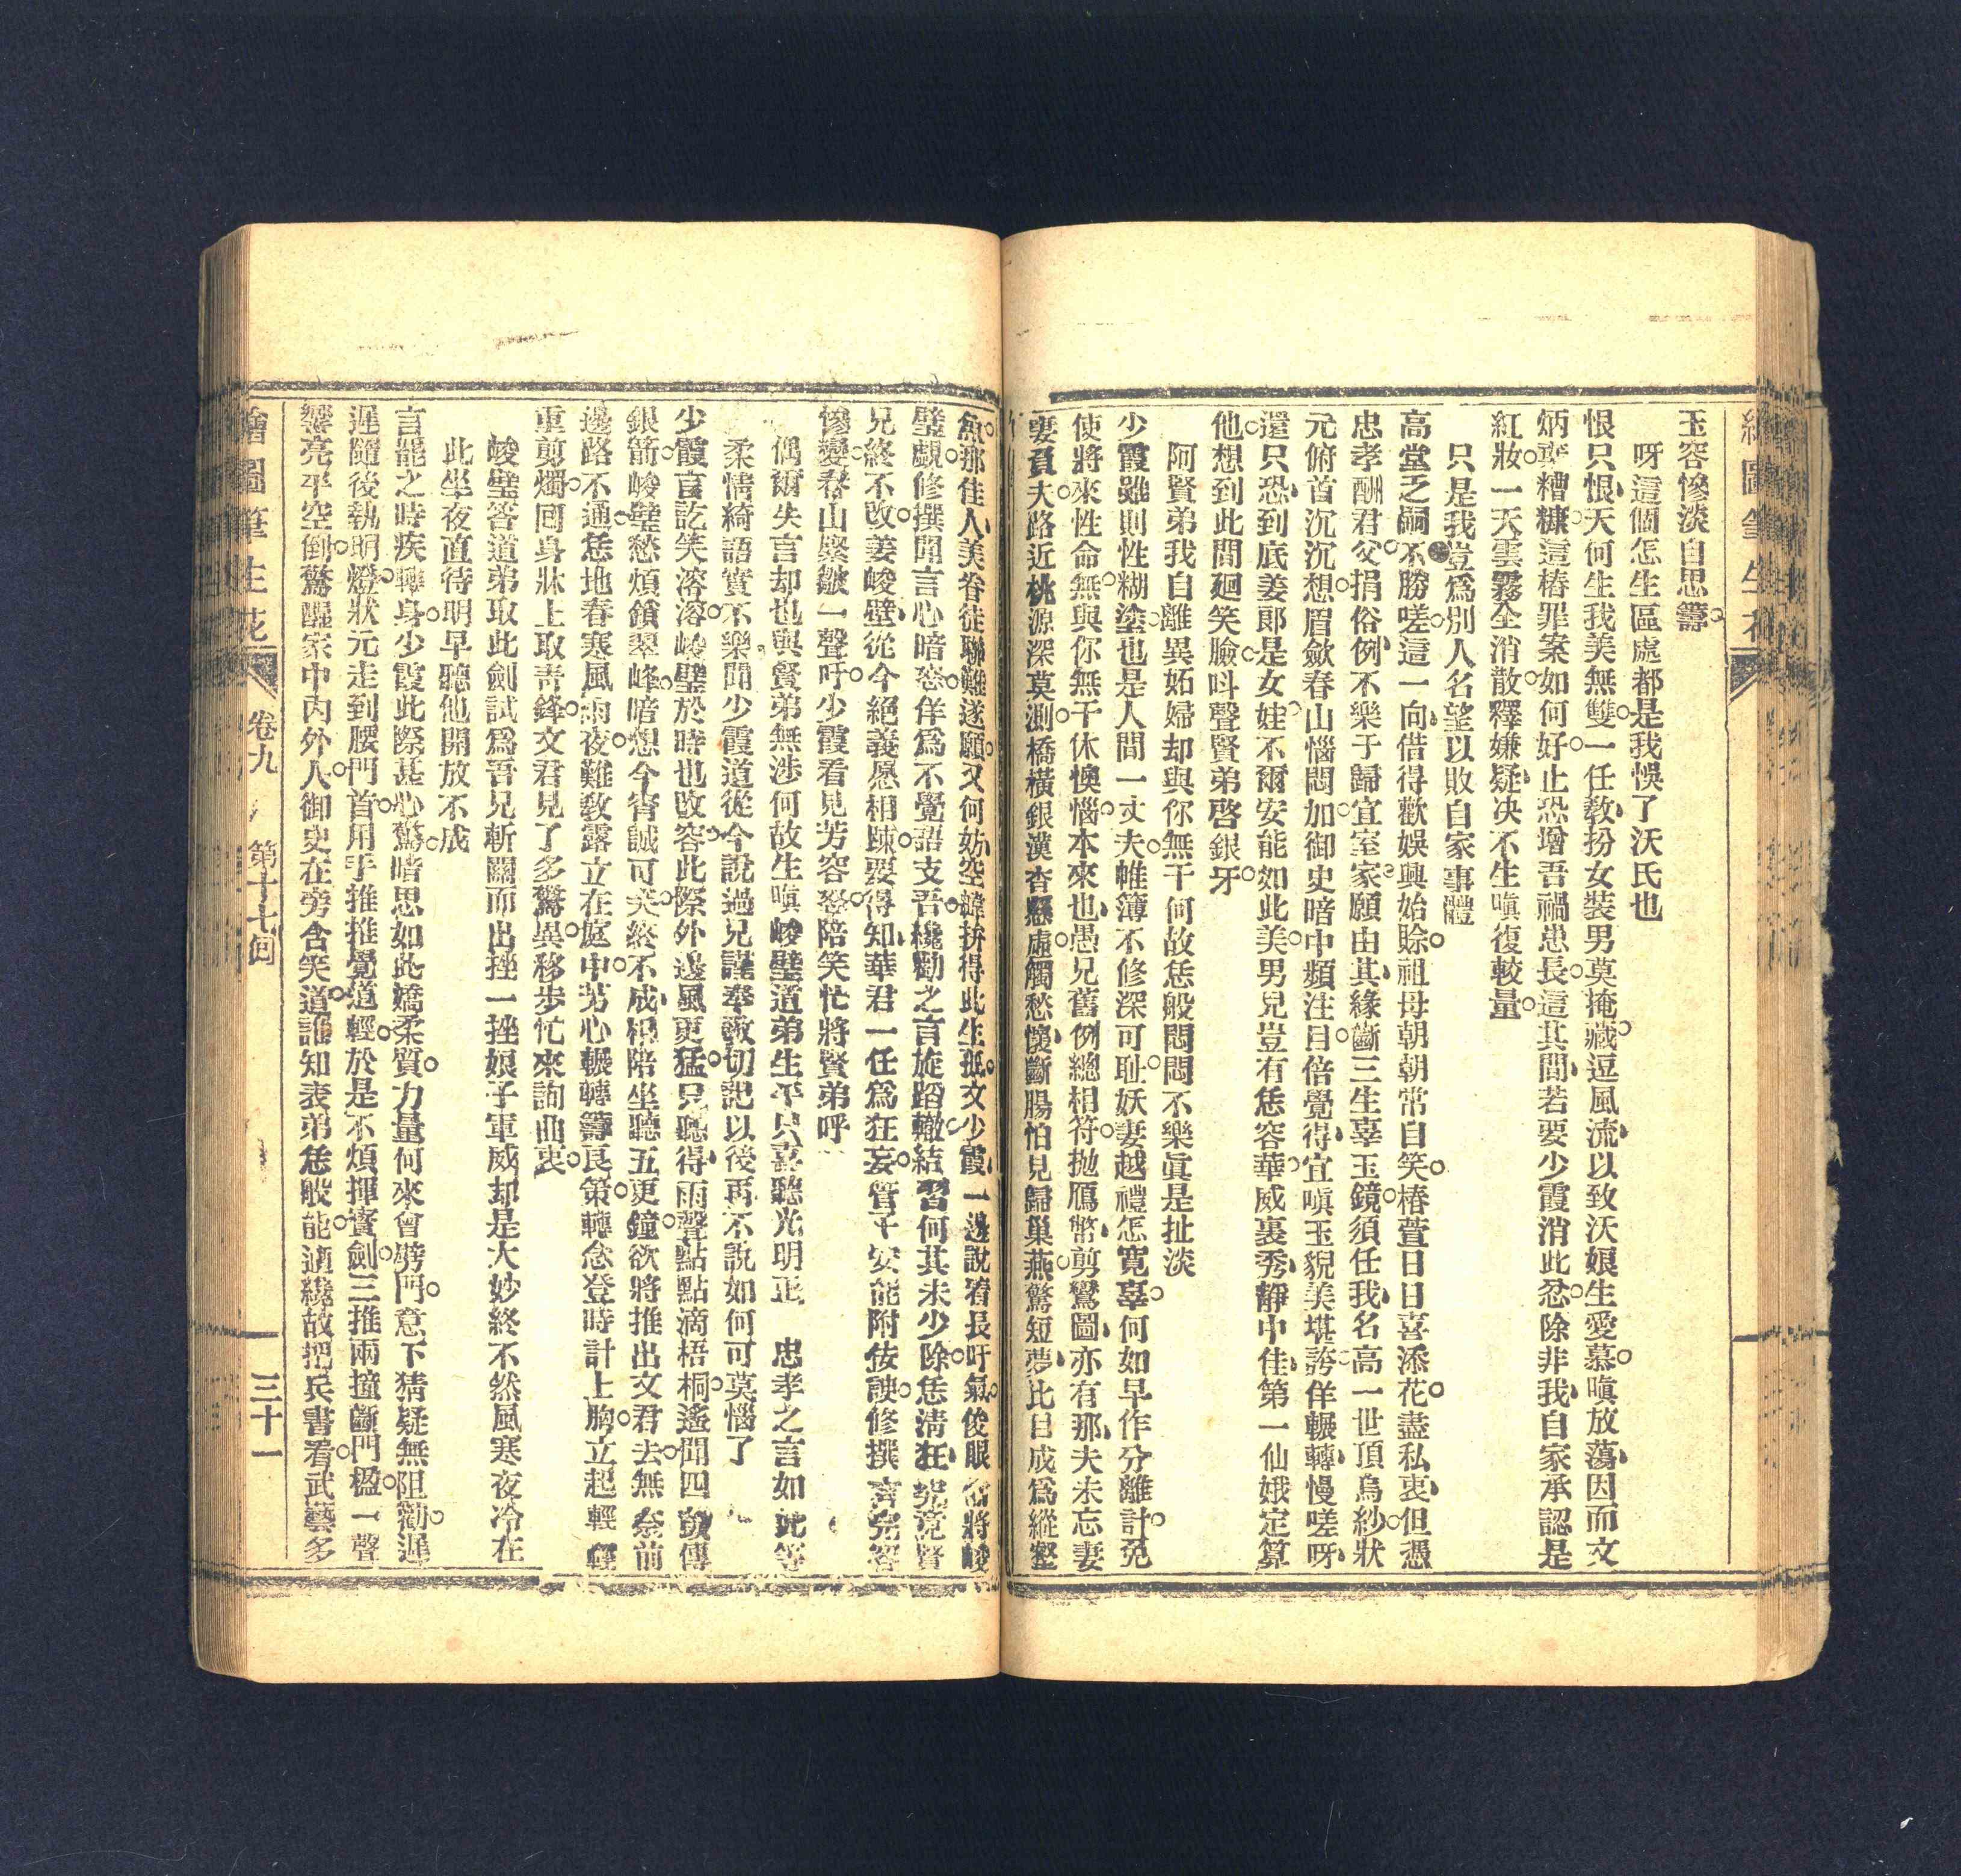 繪圖筆生花
玉容慘淡自思籌。
呀這個怎生區處都是我悞了沃氏也
恨只恨、天何生我美無雙。一任教、扮女裝男莫掩藏。逗風流、以致沃娘生愛慕。嗔放蕩、因而文
炳棄糟糠。這椿罪案如何好。止恐增吾禍患長。這其間、若要少霞消此忿。除非我、自家承認是
紅妝。一天雲霧全消散。釋嫌疑、决不生嗔復較量。
只是我豈爲別人名望以敗自家事體
高堂乏嗣不勝嗟。這一向、借得歡娛興始賒。祖母朝朝常自笑。椿萱日日喜添花。盡私衷、但憑
忠孝酬君父。捐俗例、不樂于歸宜室家。願由其、緣斷三生辜玉鏡。須任我、名高一世頂烏紗。狀
元俯首沉沉想。眉斂春山惱悶加。御史暗中頻注目。倍覺得、宜嗔玉貌美堪誇。佯輾轉、慢嗟呀、
還只恐、到底姜郎是女娃。不爾安能如此美。男兒豈有恁容華。威裏秀、靜中佳、第一仙娥定算
他。想到此間廻笑臉。呌聲賢弟啓銀牙。
阿賢弟我自離異妬婦却與你無干何故恁般悶悶不樂眞是扯淡
少霞雖則性糊塗。也是人間一丈夫。帷簿不修深可耻。妖妻越禮怎寬辜。何如早作分離計。免
使將來性命無。與你無干休懊惱。本來也、愚兄舊例總相符。抛鴈幣、剪鸞圖、亦有那、夫未忘妻
妻負夫。路近桃源深莫測。橋橫銀漢杳懸虛。觸愁懷、斷腸怕見歸巢燕。驚短夢、比目成爲縱壑
魚。那佳人、美眷徒聯難遂願。又何妨、空緯拚得此生孤。文少霞、一邊說着長吁氣。俊眼
璧覷。修撰聞言心暗恙。佯爲不覺語支吾。纔勸之言旋蹈轍。結習何其未少除。恁清狂、
兄終不改。姜峻壁、從今絕義愿相疎。要得知、華君一任爲狂妄。管子安能附佞諛。修撰
慘變。春山緊皺一聲吁。少霞看見芳容發。陪笑忙將賢弟呼
偶爾失言却也與賢弟無涉何故生嗔峻璧道弟生平只喜聽光明正　忠孝之言如此等
柔情綺語實不樂聞少霞道從今說過兄謹奉敎切記以後再不說如何可莫惱了
少霞言訖笑溶溶。峻璧於時也改容。此際外邊風更猛。只聽得、雨聲點點滴梧桐。遙聞四鼓傳
銀箭。峻璧愁煩鎖翠峰。暗想今宵誠可笑。終不成、相陪坐聽五更鐘。欲將推出文君去。無奈前
邊路不通。恁地春寒風雨夜。難敎露立在庭中。芳心輾轉籌良策。轉念登時計上胸。立起輕輕
重剪燭。囘身牀上取靑鋒。文君見了多驚異。移步忙來詢曲衷。
峻璧答道弟取此劍試爲吾兄斬關而出挫一挫娘子軍威却是大妙終不然風寒夜冷在
此坐夜直待明早聽他開放不成
言罷之時疾轉身。少霞此際甚心驚。暗思如此嬌柔質。力量何來會劈門。意下猜疑無阻勸。遲
遲隨後執明燈。狀元走到腰門首。用手推推覺道輕。於是不煩揮寶劍。三推兩撞斷門楹。一聲
響亮平空倒。驚醒家中內外人。御史在旁含笑道。誰知表弟恁般能。適纔故把兵書看。武藝多
繪圖筆生花
卷九
第十七回
三十一